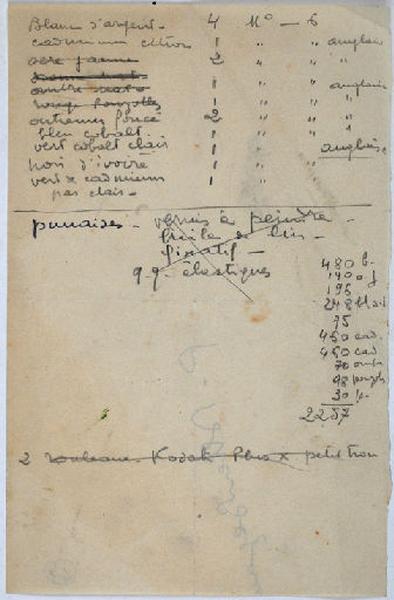 Blanc d'argent - 4 No - 6
cadmium citron 1 " " anglais
ocre jaune 2 " "
1 " " anglais
ombre 1 " "
rouge pouzolles 1 " "
outremer foncé 2 " "
bleu cobalt 1 " "
vert cobalt clair 1 " " anglaise
noir d'ivoire 1 " "
vert de cadmium 1 " "
pas clair -
punaises - vernis à peindre -
huile de lin -
fixatif -
q.q. élastiques
480 b.
195
248
75
450 cad.
450 cad
70
98
30
2257
2 rouleaux Kodak Plus X petit